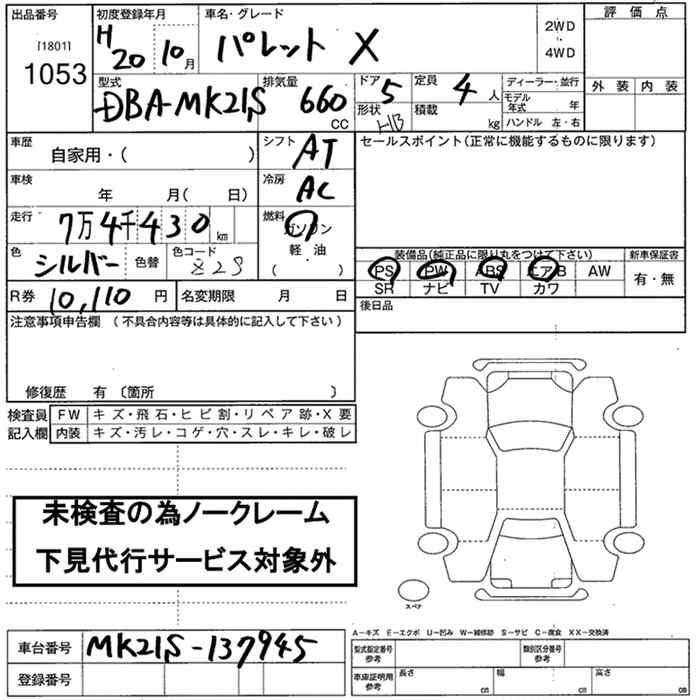 出品番号 初度登録年月 車名・グレード 評価点
[1801] H 20 10月 パレット X 2WD
1053 4WD
型式 排気量 ドア 5 定員 4人 ディーラー・並行 外装 内装
DBA-MK21S 660 CC 形状 H/B 積載 kg モデル年式 年
ハンドル 左・右
車歴 自家用・( ) シフト AT セールスポイント(正常に機能するものに限ります)
車検 年 月( 日) 冷房 AC
走行 7万4千430km 燃料 ガソリン
色 シルバー 色替 色コード Z2S 軽・油 ( )
装備品(純正品に限り丸をつけて下さい) 新車保証書
PS PW ABS エアB AW 有・無
SR ナビ TV カワ
R券 10,110円 名変期限 月 日 後日品
注意事項申告欄 (不具合内容等は具体的に記入して下さい)
修復歴 有 〔箇所 〕
検査員 FW キズ・飛石・ヒビ割・リペア跡・X要
記入欄 内装 キズ・汚レ・コゲ・穴・スレ・キレ・破レ
未検査の為ノークレーム
下見代行サービス対象外
スペア
A-キズ E-エクボ U-凹み W-補修跡 S-サビ C-腐食 XX-交換済
車台番号 MK21S-137945 型式指定番号 参考 類別区分番号 参考
登録番号 車庫証明用 参考 長さ cm 幅 cm 高さ cm